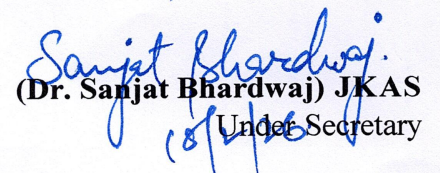 Sanjat Bhardwaj.
(Dr. Sanjat Bhardwaj) JKAS
Under Secretary